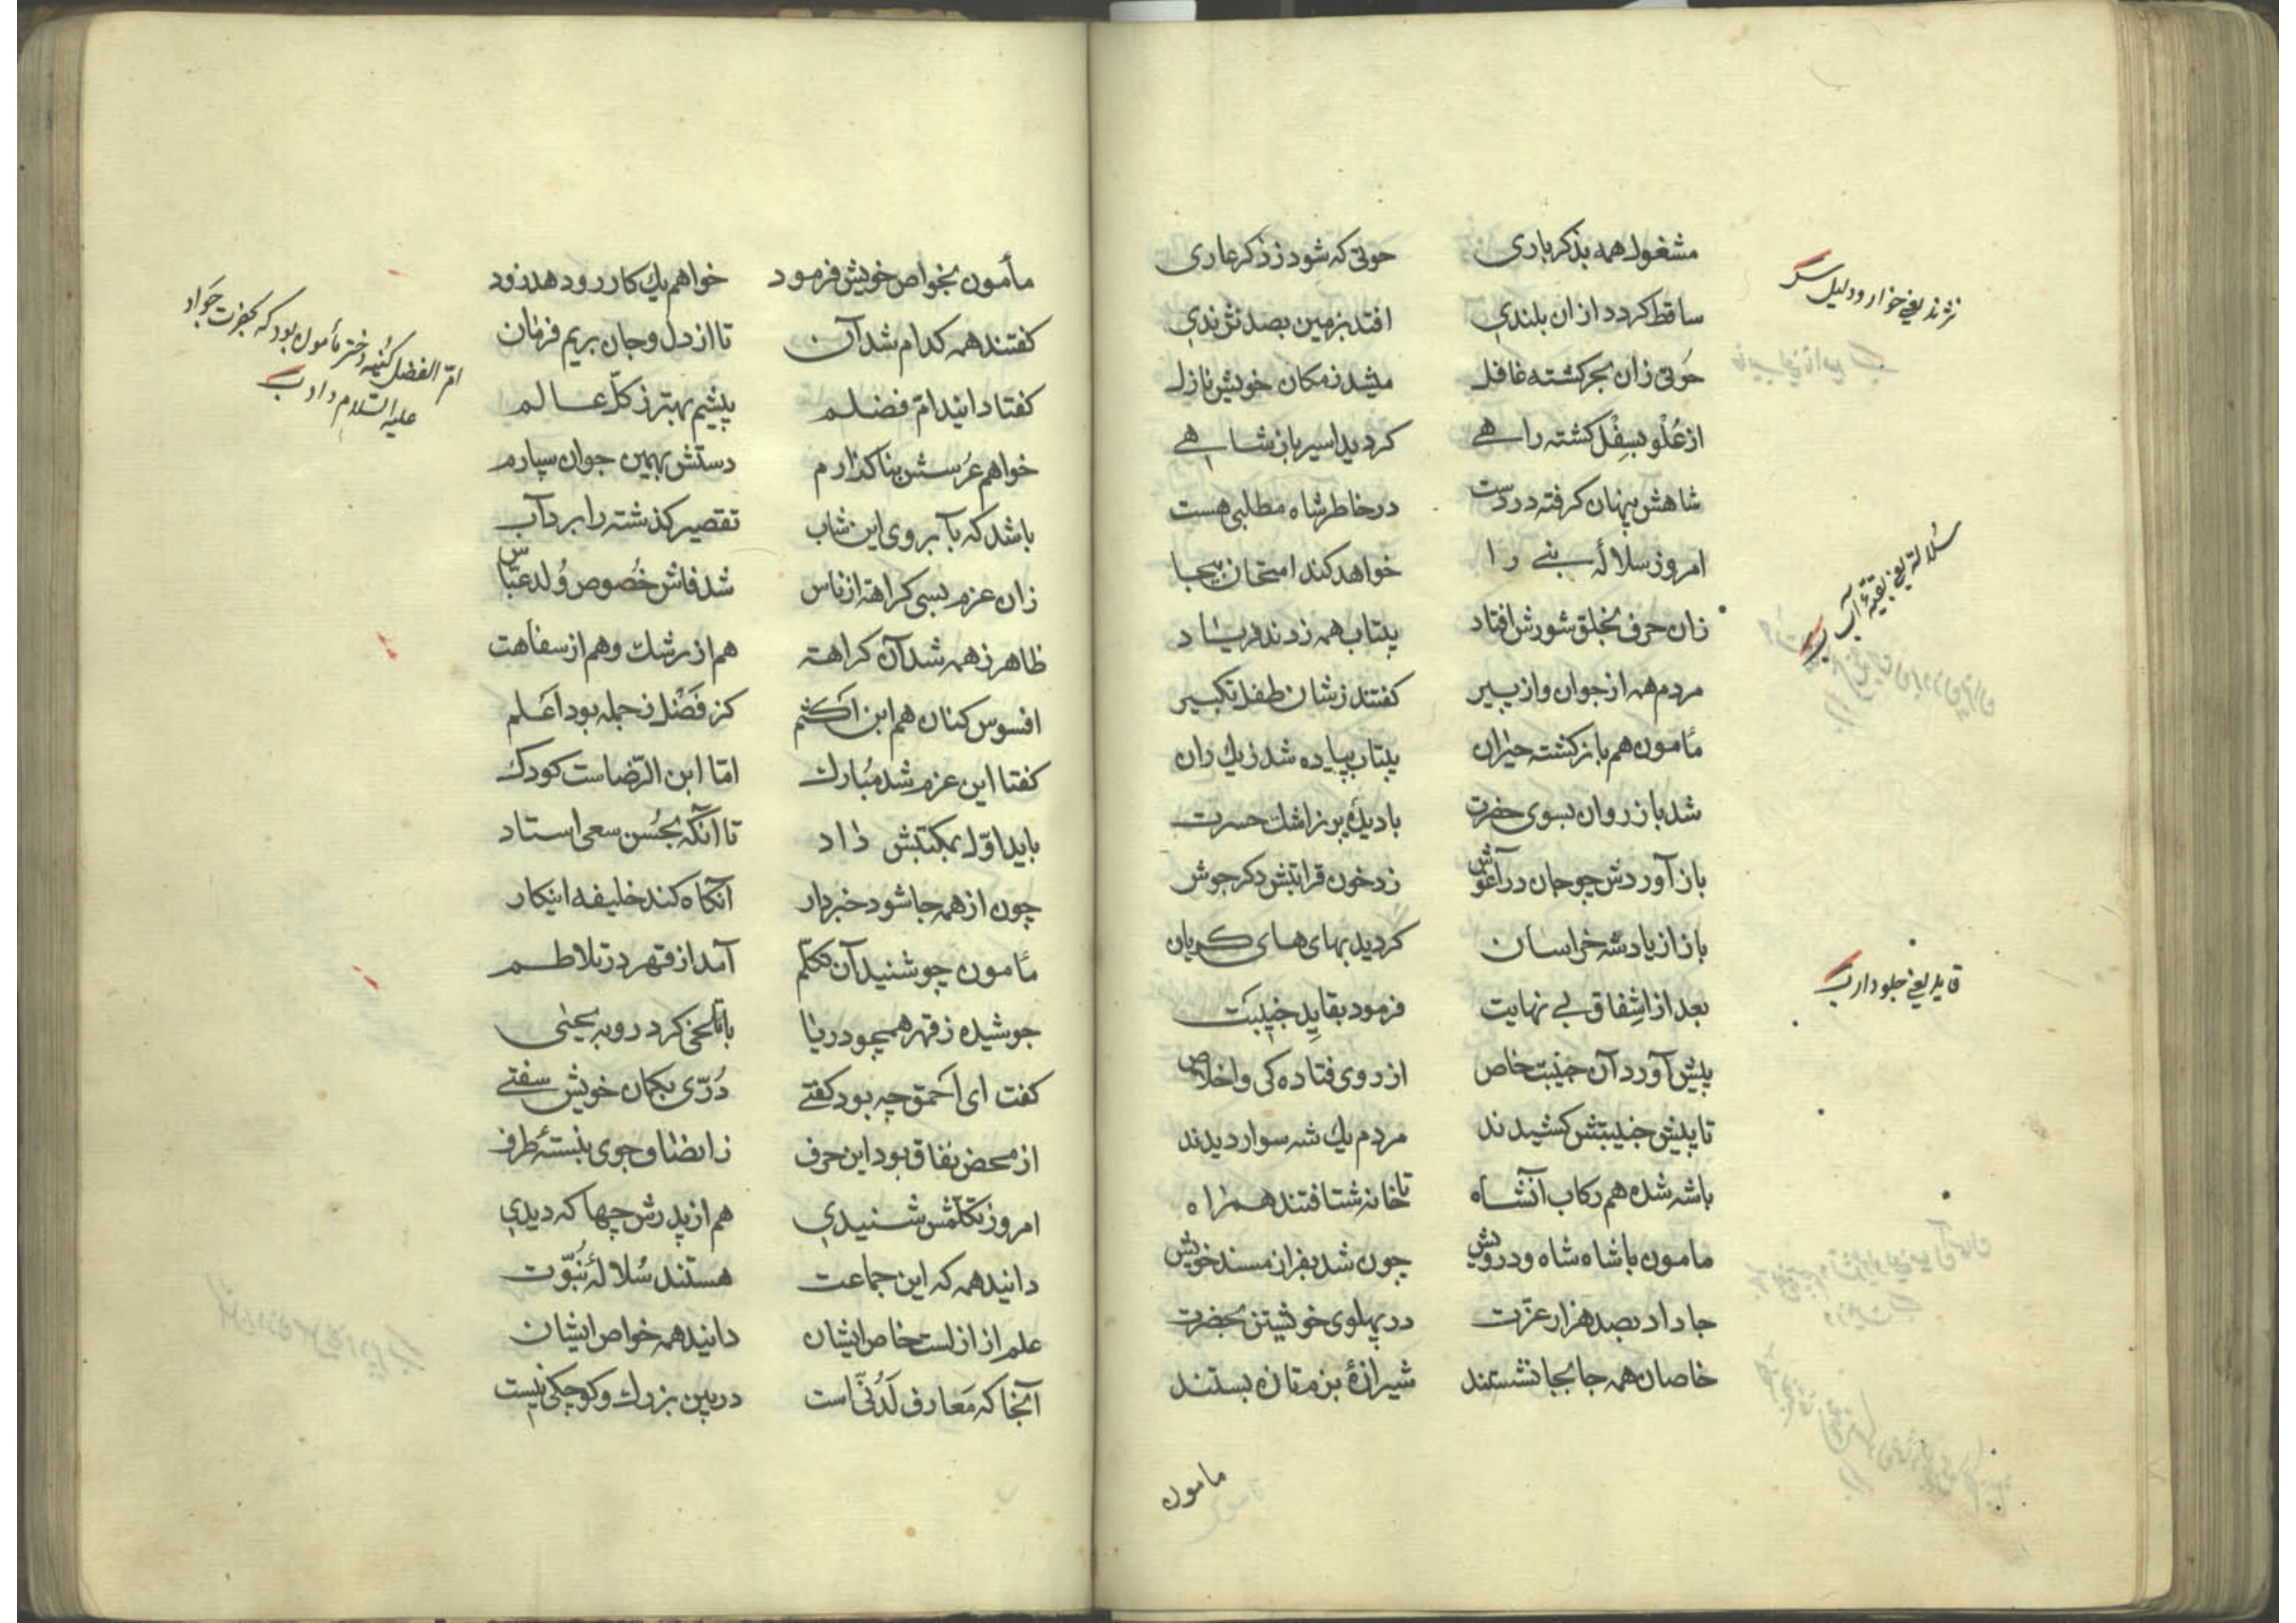 مشغول همه بذکر باری حوتی که شود ز ذکر عاری
ساقط کردد از ان بلندی افتد بزمین بصد نژندی
حوتی زان بحر کشته غافل میشد ز مکان خویش نازل
از علو بسفل کشته راهی کردید اسیر باز شاهی
شاهش پنهان کرفته در دست در خاطر شاه مطلبی هست
امروز سلالهٔ نبی را خواهد کند امتحان بیجا
زان حرف بخلق شورش افتاد بیتاب همه زدند فریاد
مردم همه از جوان و از پیر کفتند ز شان طفل تکبیر
مأمون هم باز کشته حیران بیتاب پیاده شد ز یک ران
شد باز روان بسوی حضرت با دیدهٔ پر ز اشک حسرت
باز آوردش چو جان در آغوش زد خون قرابتش دکر جوش
باز از یاد شه خراسان کردید بهای های کریان
بعد از اشفاق بی نهایت فرمود بقاید جنیبت
پیش آورد آن جنیبت خاص از روی فتاده کی و اخلاص
تا پیش جنیبتش کشیدند مردم یک شه سوار دیدند
با شه شده هم رکاب آنشاه تا خانه شتافتند همراه
مامون با شاه شاه و درویش چون شد بفراز مسند خویش
جا داد بصد هزار عزّت در پهلوی خویشتن بحضرت
خاصان همه جا بجا نشستند شیرازهٔ بزم تازه بستند
مامون
نژند یعنی خوار و ذلیل
سلاله یعنی بقیهٔ آب
قاید یعنی جلودار
مأمون بخواص خویش فرمود خواهم یک کار رو دهد زود
کفتند همه کدام شد آن تا از دل و جان بریم فرمان
کفتا دانید امّ فضلم پیشم بهتر ز کلّ عالم
خواهم عرسش بنا کذارم دستش بهمین جوان سپارم
باشد که بآبروی این شاب تقصیر کذشته را برد آب
زان عزم بسی کراهة از ناس شد فاش خصوص ولد عبّاس
ظاهر ز همه شد آن کراهة هم از رشک و هم از سفاهت
افسوس کنان هم ابن اکثم کز فضل ز جمله بود اعلم
کفتا این عزم شد مبارک امّا ابن الرّضاست کودک
باید اوّل بمکتبش داد تا آنکه بحسن سعی استاد
چون از همه جا شود خبردار آنکاه کند خلیفه اینکار
مأمون چو شنید آن تکلّم آمد از قهر در تلاطم
جوشیده ز قهر همچو دریا با تلخی کرد رو به یحیی
کفت ای احمق چه بود کفتی درّی بکمان خویش سفتی
از محض نفاق بود این حرف ز انصاف جوی نبستهٔ طرف
امروز تکلّمش شنیدی هم از پدرش چها که دیدی
دانید همه که این جماعت هستند سلالهٔ نبوّت
علم از ازلست خاص ایشان دانید همه خواص ایشان
آنجا که معارف لدنّی است در بین بزرک و کوچکی نیست
امّ الفضل کنیهٔ دختر مأمون بود که بحضرت جواد
علیه السّلام داد